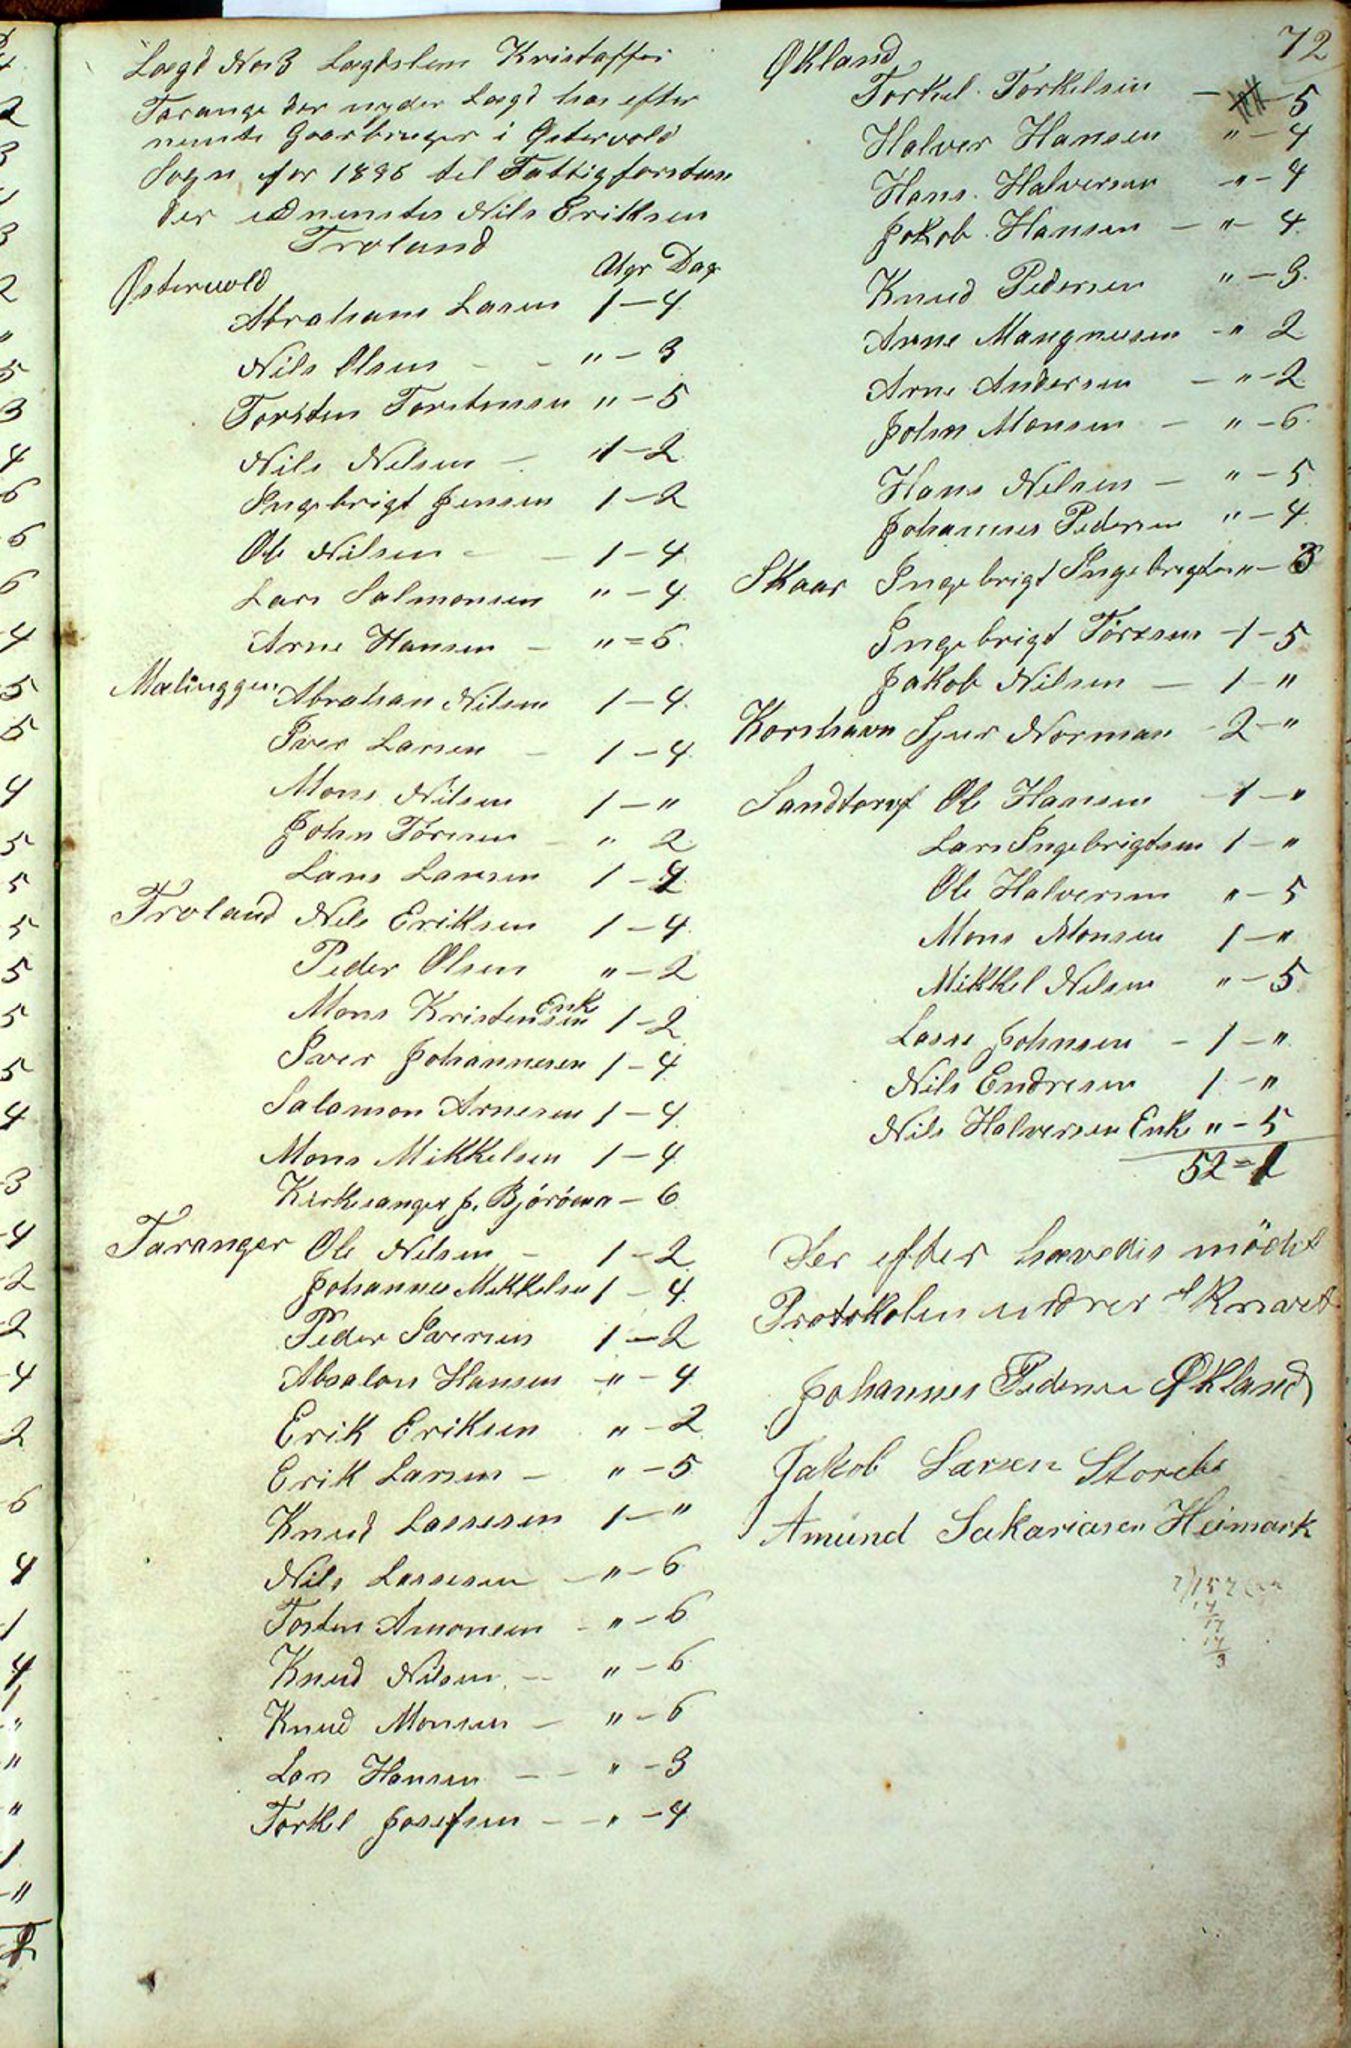 72
Lægd No 3 Lægdslem Kristaffer
Tarange der nyder Lægd hos efter
nemte Gaarbruger i Østervold
Sogn for 1886 tel Fattigforstan
der udnemtes Nils Eriksen
Troland
Østervold Uger Dag
Abraham Larsen 1 – 4
Nils Olsen – – " – 3
Torsten Torstensen " – 5
Nils Nilsen – 1 – 2
Ingebrigt Jensen 1 – 2
Ole Nilsen – – 1 – 4
Lars Salmonsen " – 4
Arne Hansen – " = 6
Mælinggen Abraham Nilsen 1 – 4
Iver Larsen – 1 – 4
Mons Nilsen 1 – "
John Töresen – " 2
Lars Larsen 1 – 2
Troland Nils Eriksen 1 – 4
Peder Olsen " – 2
Mons Kristensen Enke 1 – 2
Iver Johannesen 1 – 4
Salamon Arnesen 1 – 4
Mons Mikkelsen 1 – 4
Kirkesanger J. – 6
Taranger Ole Nilsen – 1 – 2
Johannes Mikkelsen 1 – 4
Peder Iversen 1 – 2
Absalon Hansen – " – 4
Erik Eriksen " – 2
Erik Larsen – " – 5
Knud Lassesen 1 – "
Nils Lassesen – " – 6
Tosten Amonsen – " – 6
Knud Nilsen – " – 6
Knud Monsen – " – 6
Lars Hansen – – " – 3
Torkel Josefsen – – " – 4
Økland
Torkel Torkelsen – – 5
Halver Hansen " – 4
Hans Halversen – " – 4
Jakob Hansen – " – 4
Knud Pedersen " – 3
Arne Mangnusen – " 2
Arne Andersen – " – 2
John Monsen – " – 6
Hans Nilsen – " – 5
Johannes Pedersen " – 4
Skaar Ingebrigt Ingebrigtsen " – 3
Ingebrigt Töresen – 1 – 5
Jakob Nilsen – 1 – "
Korshavn Sjur Norman – 2 – "
Sandtorv Ole Hansen – 1 – "
Lars Ingebrigtsen 1 – "
Ole Halversen " – 5
Mons Monsen 1 – "
Mikkel Nilsen " – 5
Lasse Johnsen – 1 – "
Nils Endresen 1 – "
Nils Halversen Enke " – 5
52 = 1
Der efter hævedes mödet
Protokolen
Johannes Pedersen Økland
Jakob Larsen Storebø
Amund Sakariasen Heimark
14
17
14
3